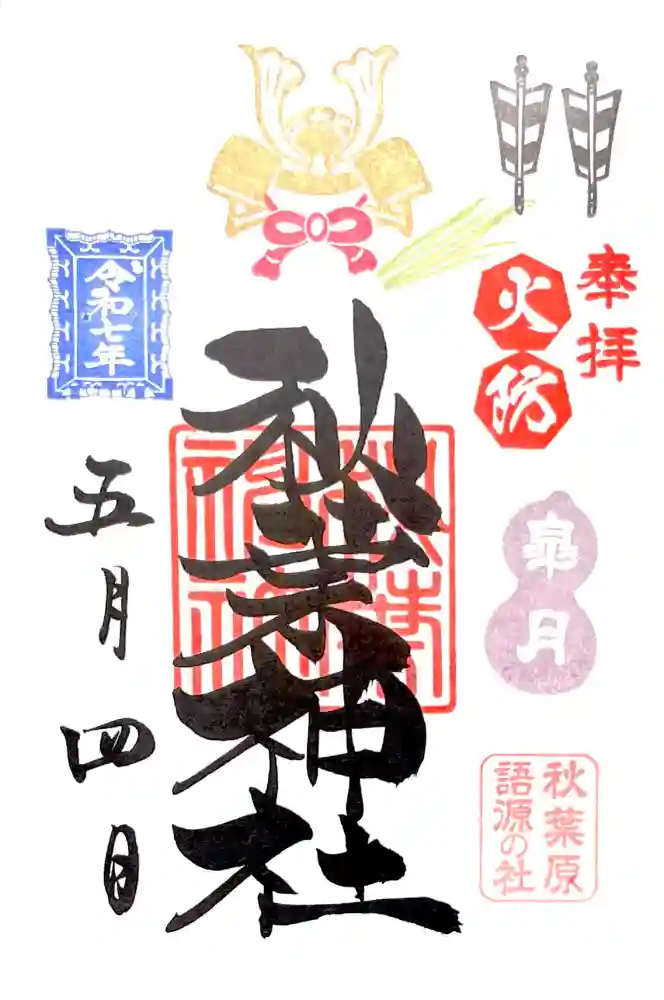 奉拝
火防
皐月
秋葉原
語源の社
秋葉神社
秋葉神社
令和七年
五月四日